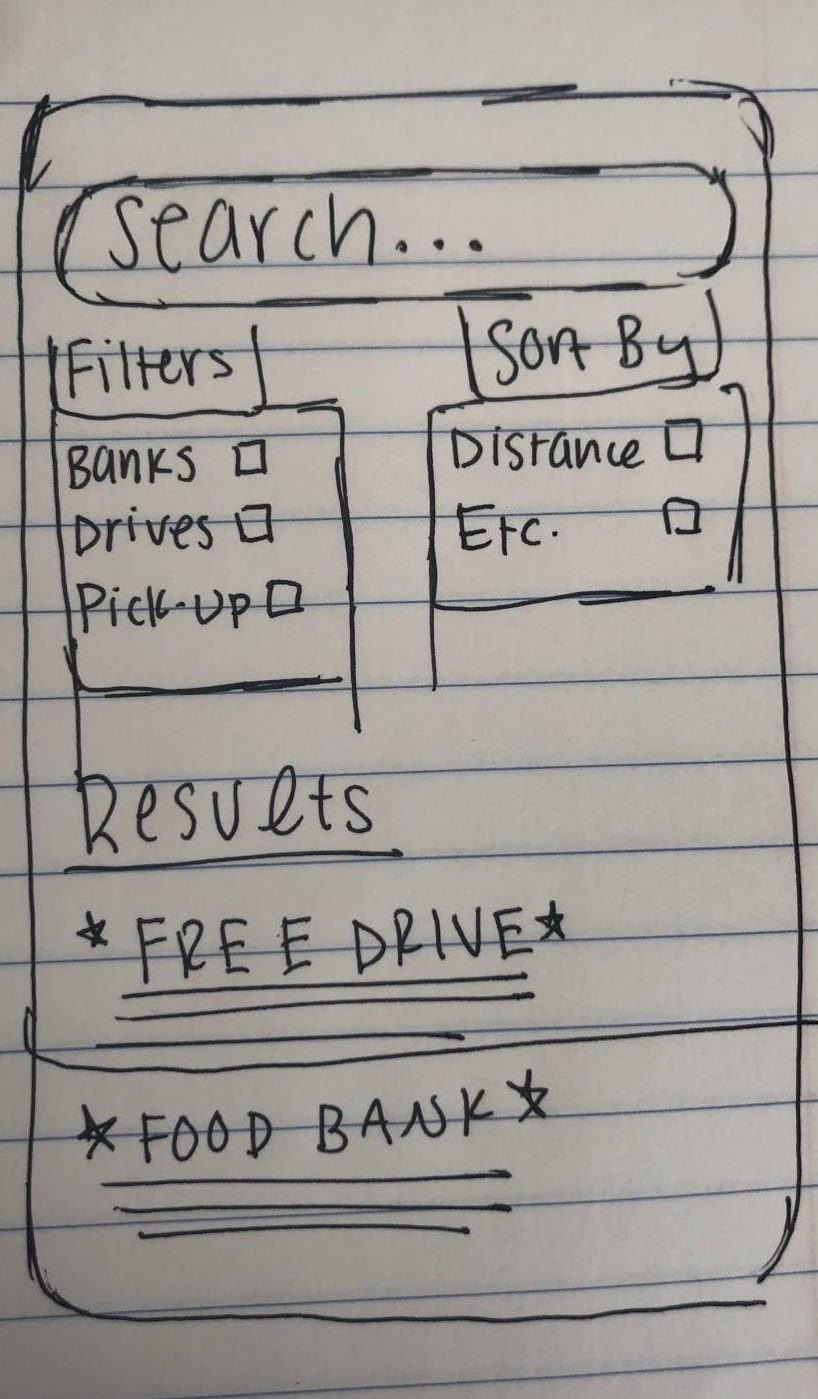 Search...
Filters
Sort By
Banks
Drives
Pick-up
Distance
Etc.
Results
*FREE DRIVE*
*FOOD BANK*